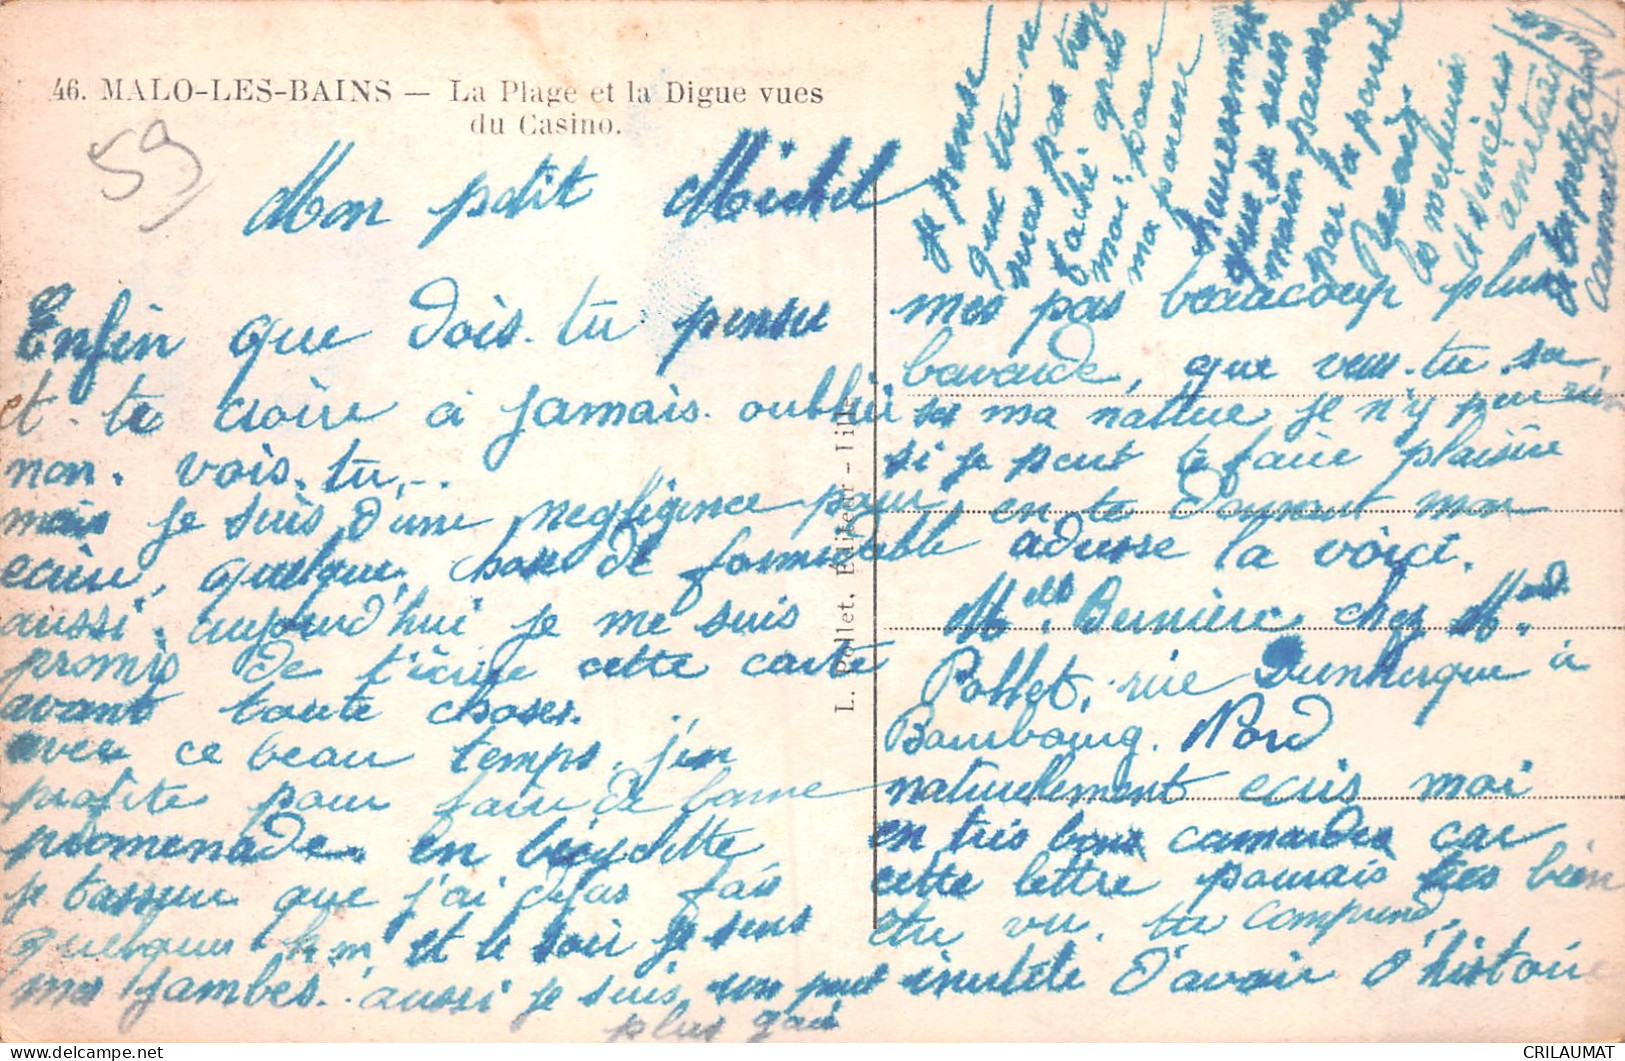 46. MALO-LES-BAINS — La Plage et la Digue vues
du Casino.
59
Mon petit Michel
Enfin que dois-tu penser
et te croire a jamais oublié
non. vois.tu,..
mais je suis d'une negligence pour
ecrire, quelque chose de formidable
aussi, aujourd'hui je me suis
promis de t'écrire cette carte
avant toute choses.
avec ce beau temps, j'en
profite pour faire de bonne
promenade. en bicyclette,
je t'assure que j'ai dejas fais
quelques km, et le soir je sens
mes jambes. aussi je suis un peut
plus gai
mes pas beaucoup plus
bavarde, que veus-tu sa,
ses ma nature je n'y peu rien
si je peut te faire plaisire
en te donnent mon
adresse la voici.
Melle Bernière chez Mad.
Pollet, rue Dunkerque à
Bourbourg. Nord
naturelement ecris moi
en tres bons camarde car
cette lettre pourais tres bien
etre vu, tu comprend,
inutile d'avoir d'histoire
je pense
que tu ne
seras pas trop
faché après
moi, par
ma paren
heuresement
que je suis
main
par la pensé
Recois
les meilleurs
et sincères
amitiés
camarde
L. Pollet, Editeur - Lille
CRILAUMAT